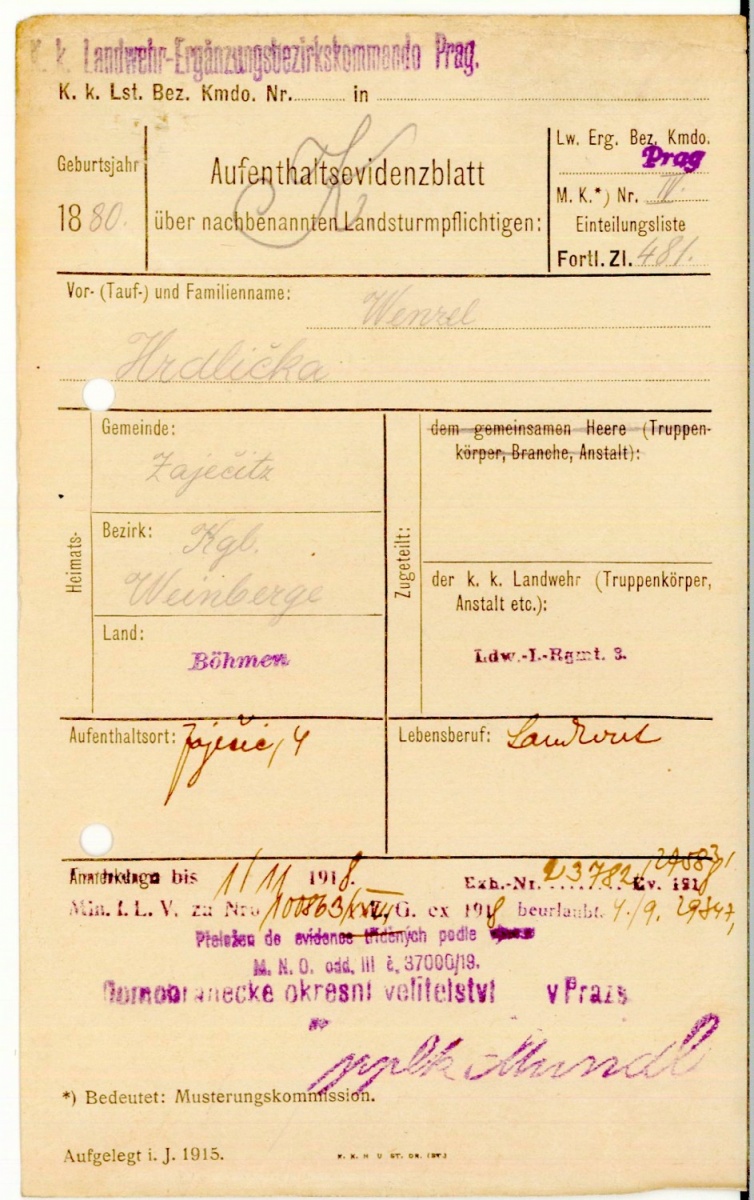 K. k. Landwehr-Ergänzungsbezirkskommando Prag.
K. k. Lst. Bez. Kmdo. Nr. in
Geburtsjahr
1880.
Aufenthaltsevidenzblatt
über nachbenannten Landsturmpflichtigen:
K
Lw. Erg. Bez. Kmdo.
Prag
M. K.*) Nr. IV.
Einteilungsliste
Fortl. Zl. 481.
Vor- (Tauf-) und Familienname: Wenzel
Hrdlička
Heimats-
Gemeinde:
Zaječitz
Bezirk: Kgl.
Weinberge
Land:
Böhmen
Zugeteilt:
dem gemeinsamen Heere (Truppen-
körper, Branche, Anstalt):
der k. k. Landwehr (Truppenkörper,
Anstalt etc.):
Ldw.-I.-Rgmt. 3.
Aufenthaltsort: Zaječic, 4
Lebensberuf: Landwirt
bis 1/11 1918. Exh.-Nr. 23782 Ev. 1918
Min. f. L. V. zu Nro 100863/XVII/G. ex 1918 beurlaubt. 4./9. 29347,
Přeložen do evidence tříděných podle
M. N. O. odd. III č. 37000/19.
Domobranecké okresní velitelství v Praze
pplk
*) Bedeutet: Musterungskommission.
Aufgelegt i. J. 1915.